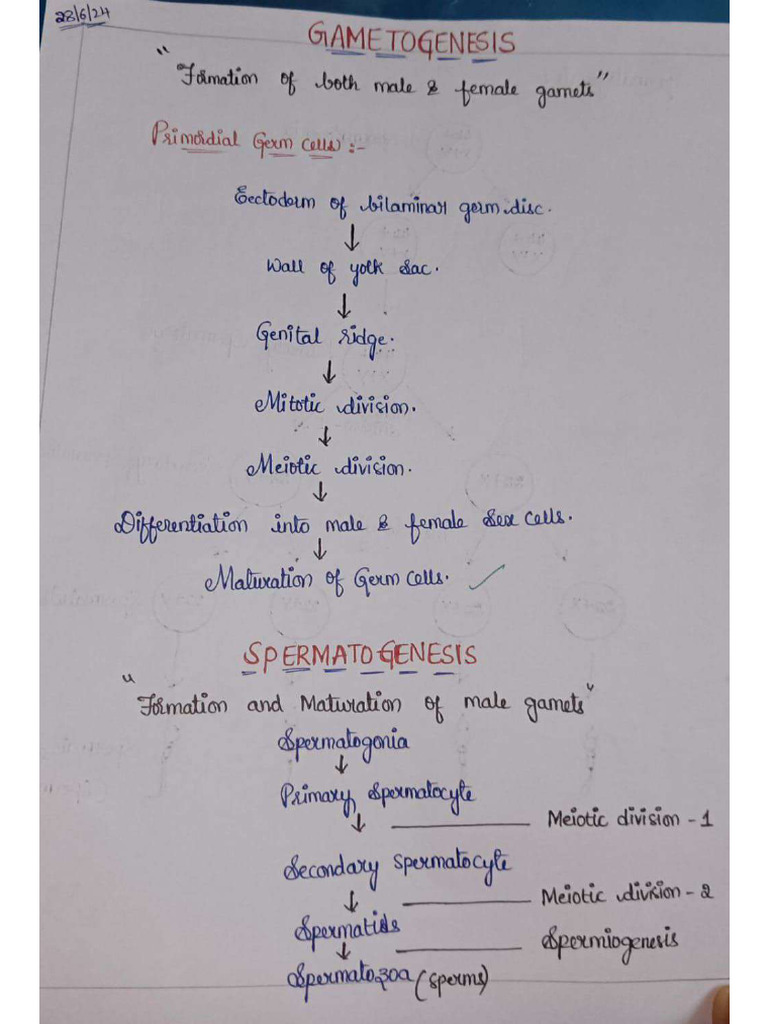 28/6/24
GAMETOGENESIS
"Formation of both male & female gamets"
Primordial Germ cells :-
Ectoderm of bilaminar germ disc.
↓
Wall of yolk sac.
↓
Genital ridge.
↓
Mitotic division.
↓
Meiotic division.
↓
Differentiation into male & female sex cells.
↓
Maturation of Germ cells. ✓
SPERMATOGENESIS
"Formation and Maturation of male gamets"
Spermatogonia
↓
Primary Spermatocyte
↓ Meiotic division - 1
Secondary spermatocyte
↓ Meiotic division - 2
Spermatids
↓ Spermiogenesis
Spermatozoa (sperms)